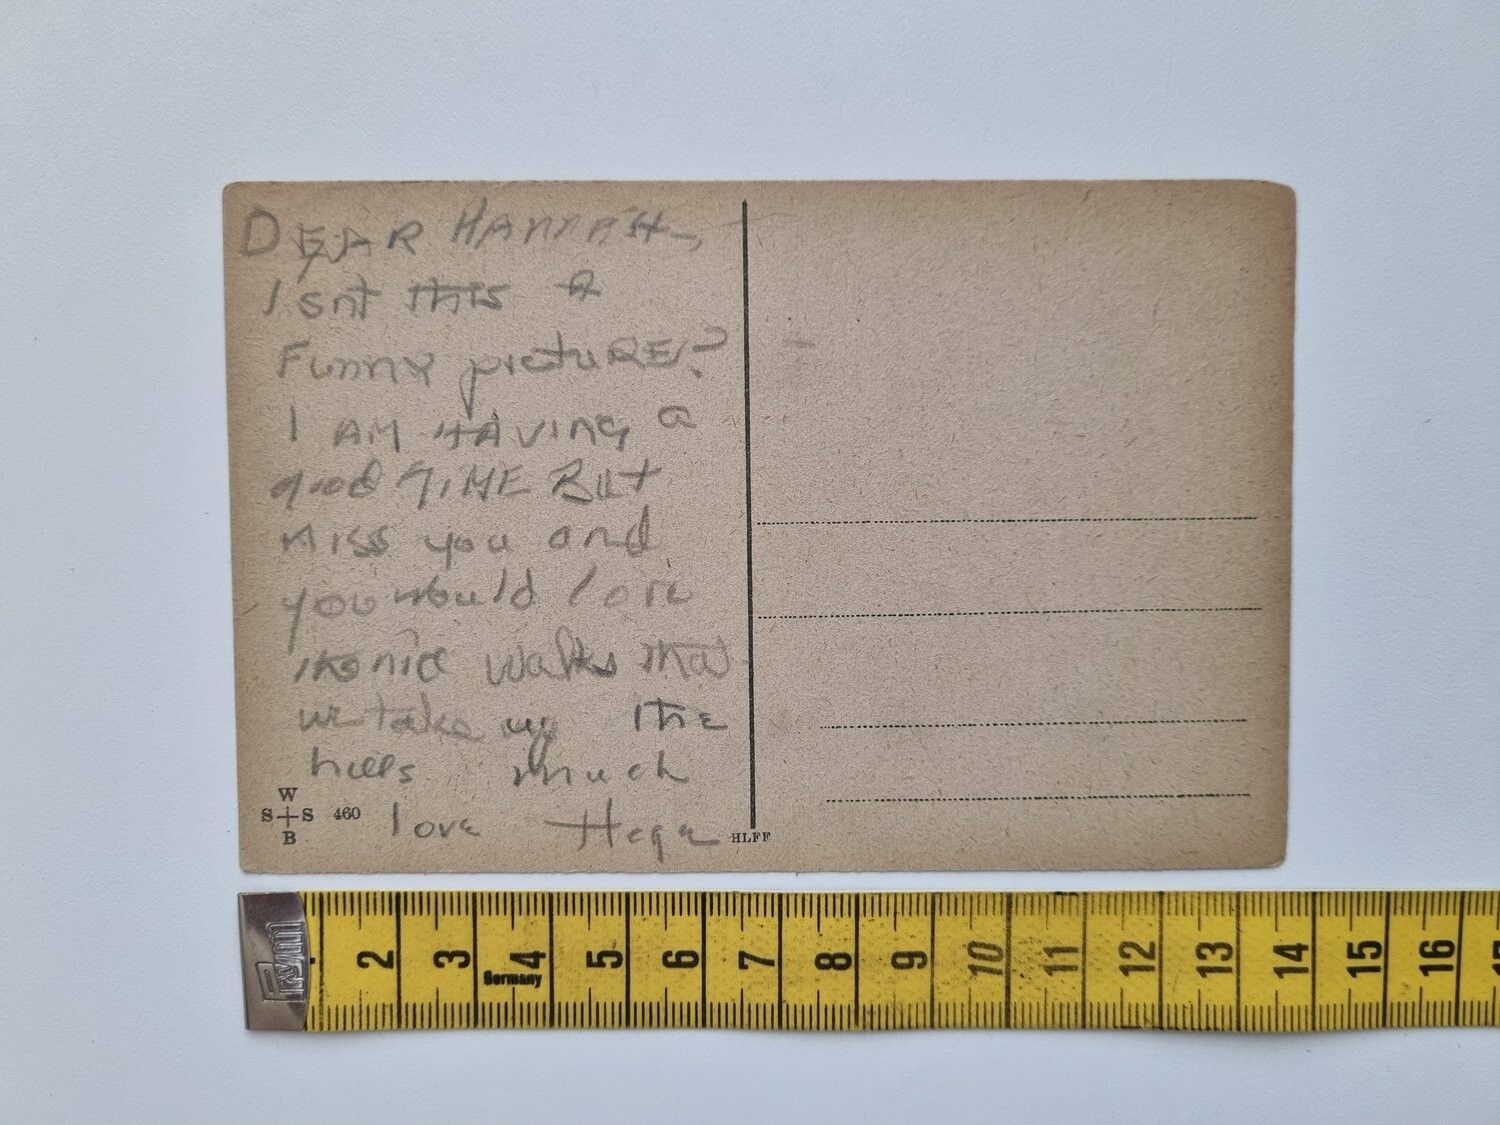 DEAR HANNAH,
Isnt this a
Funny picture?
I AM HAVING a
good TIME BUT
MISS you and
you would love
the nice walks that
we take up the
hills much
love
W
S S 460
B
HLFF
Prym
2 3 4 5 6 7 8 9 10 11 12 13 14 15 16
Germany